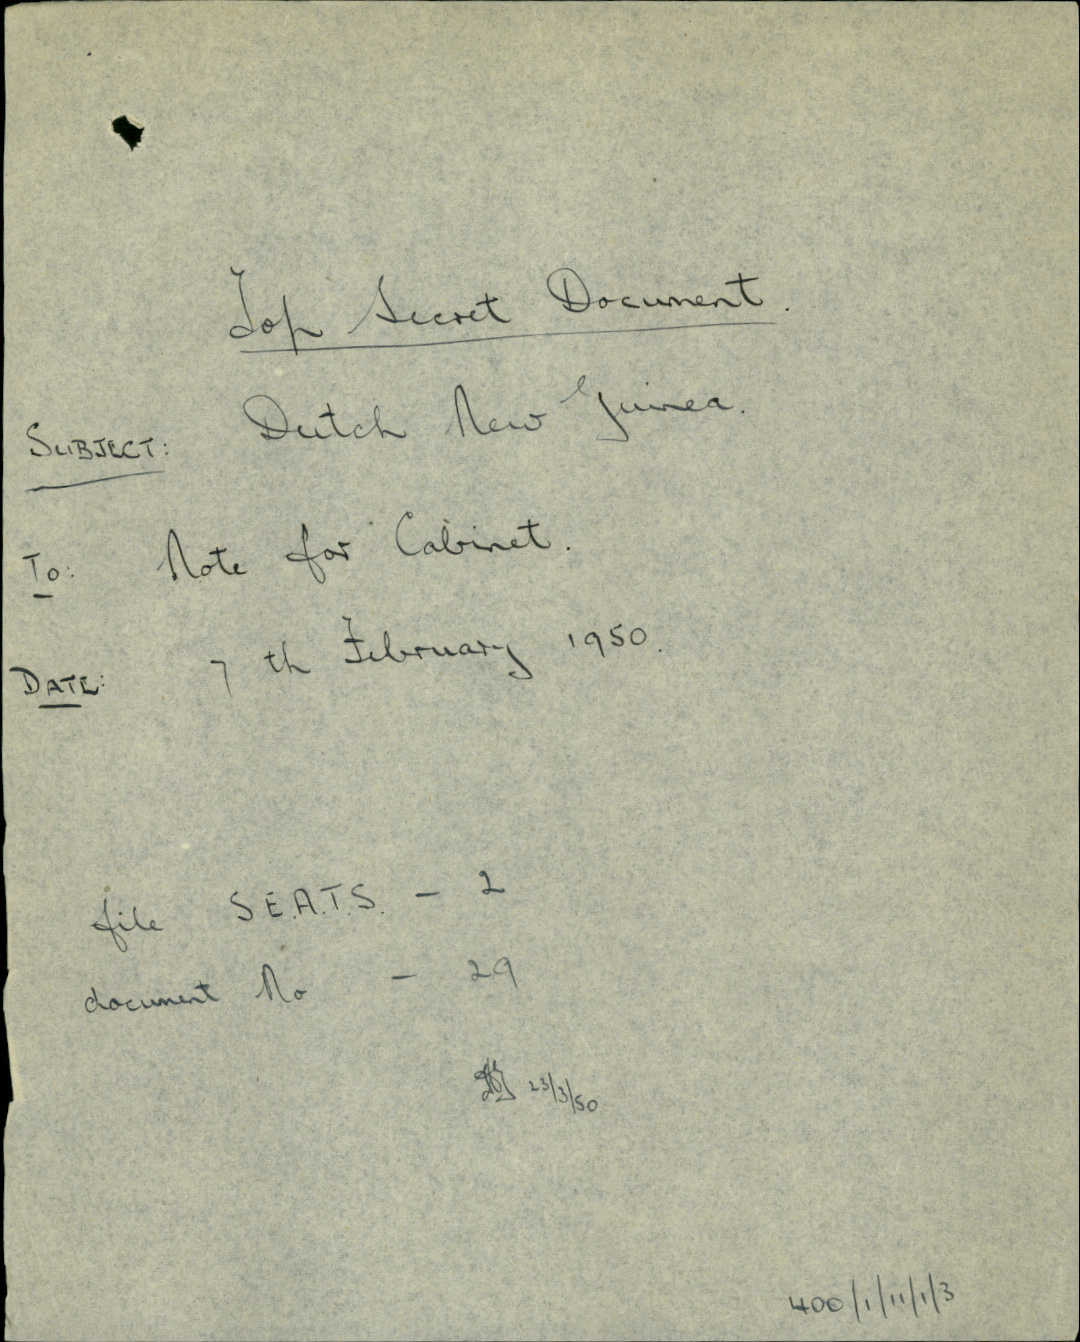 Top Secret Document.
SUBJECT: Dutch New Guinea.
To: Note for Cabinet.
DATE: 7 th February 1950.
file S.E.A.T.S. - 2
document No - 29
23/3/50
400/1/11/1/3